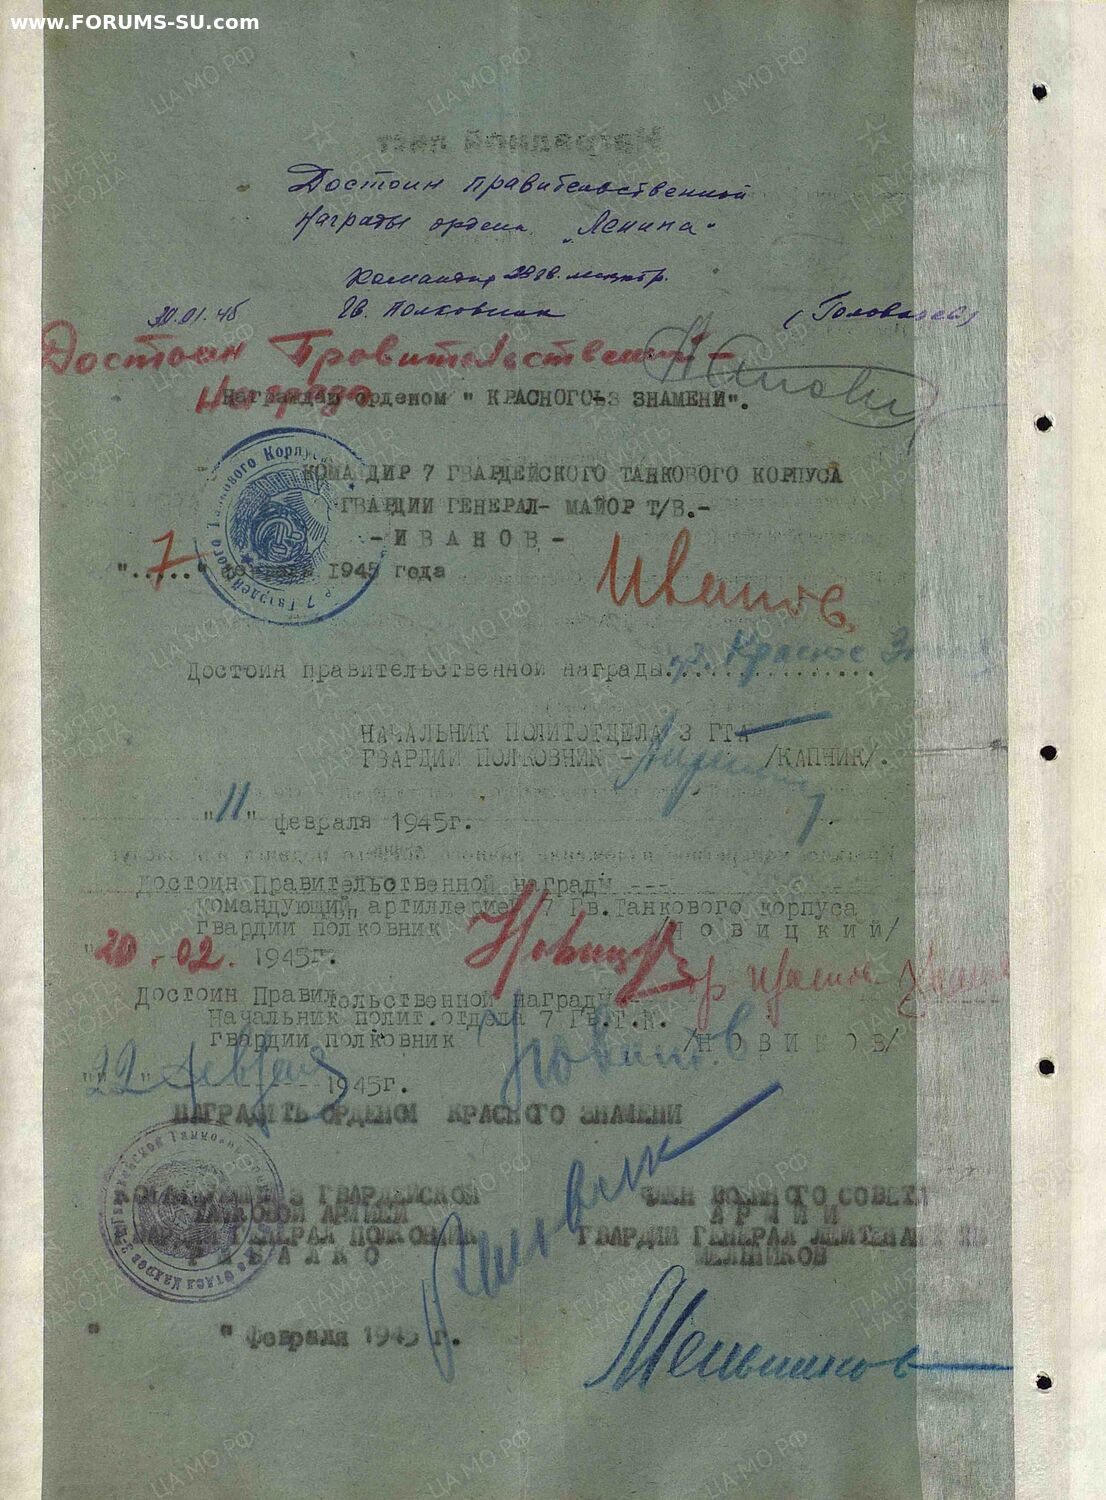 www.FORUMS-SU.com
Достоин правительственной
Награды ордена „Ленина“
Командир 23 гв. мсбр.
30.01.45 Гв. Полковник (Головачев)
Достоин Правительствен-
Награда
Награждаю орденом " КРАСНОГО ЗНАМЕНИ".
КОМАНДИР 7 ГВАРДЕЙСКОГО ТАНКОВОГО КОРПУСА
ГВАРДИИ ГЕНЕРАЛ- МАЙОР Т/В.-
-ИВАНОВ-
"7" февраля 1945 года
Иванов
Достоин правительственной награды Красное
НАЧАЛЬНИК ПОЛИТОТДЕЛА 3 ГТА
ГВАРДИИ ПОЛКОВНИК - /КАПНИК/.
"11" февраля 1945г.
Достоин Правительственной награды ---
Командующий артиллерией 7 Гв.Танкового корпуса
гвардии полковник /НОВИЦКИЙ/
"20".02. 1945г.
ор Красное
Достоин Правительственной награды --
Начальник полит.отдела 7 Гв.Т.К.
гвардии полковник /НОВИКОВ/
"22" февраля 1945г.
НАГРАДИТЬ ОРДЕНОМ КРАСНОГО ЗНАМЕНИ
КОМАНДУЮЩИЙ 3 ГВАРДЕЙСКОЙ
ТАНКОВОЙ АРМИЕЙ
ГВАРДИИ ГЕНЕРАЛ ПОЛКОВНИК
РЫБАЛКО
ЧЛЕН ВОЕННОГО СОВЕТА
АРМИИ
ГВАРДИИ ГЕНЕРАЛ ЛЕЙТЕНАНТ ТВ
МЕЛЬНИКОВ
" " февраля 1945 г.
Мельников
ПАМЯТЬ НАРОДА
ЦА МО РФ